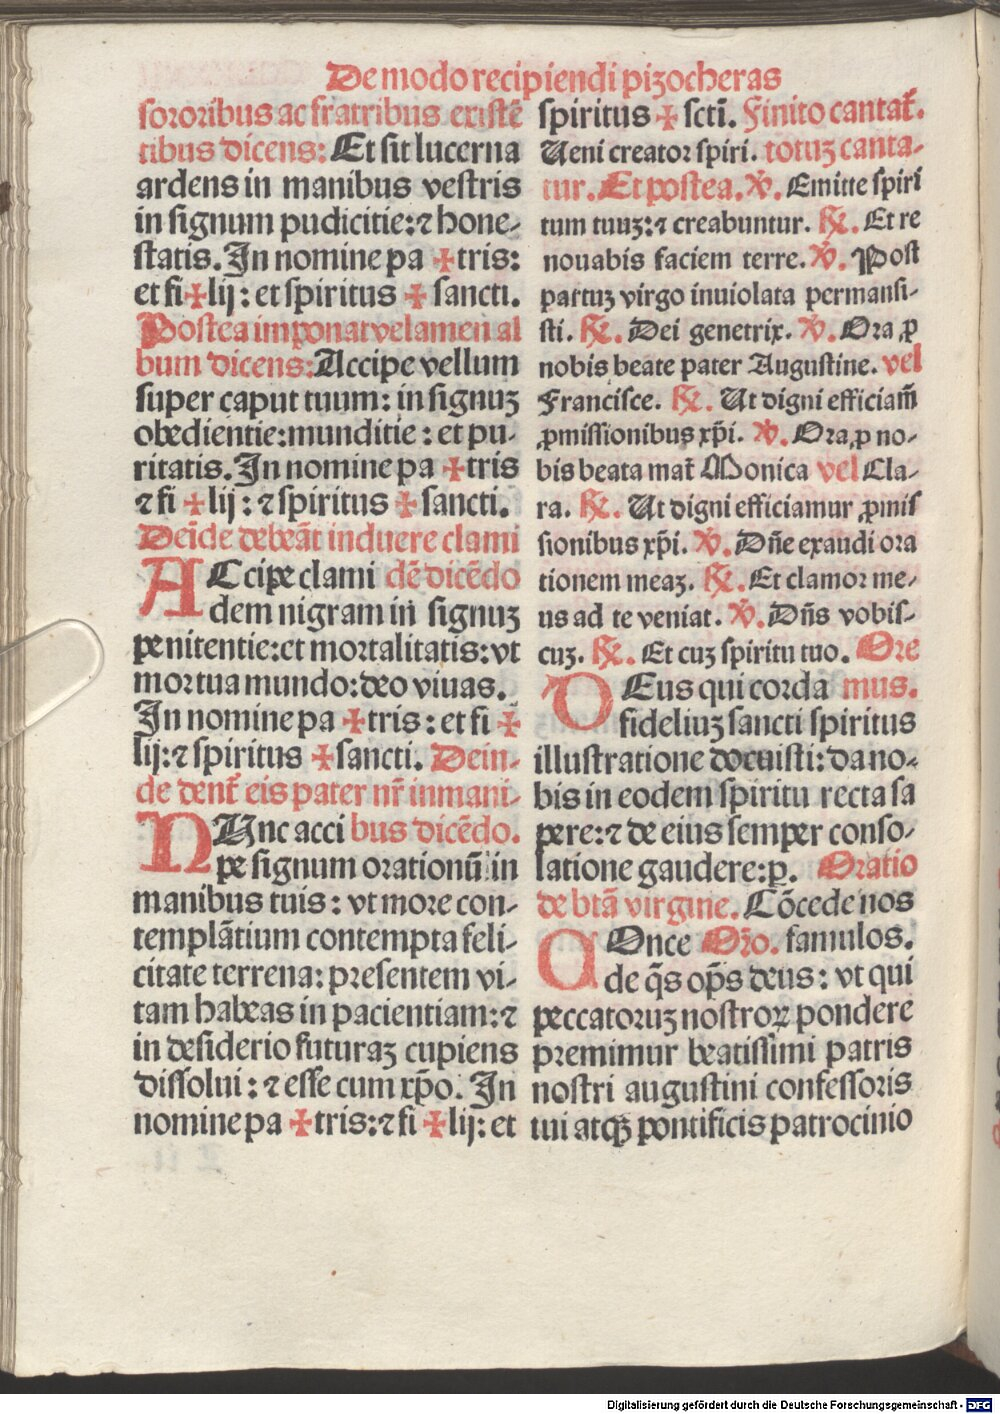 De modo recipiendi pizocheras
sororibus ac fratribus existē
tibus dicens: Et sit lucerna
ardens in manibus vestris
in signum pudicitie: ⁊ hone-
statis. In nomine pa ✠ tris:
et fi ✠ lij: et spiritus ✠ sancti.
Postea imponat velamen al
bum dicens: Accipe vellum
super caput tuum: in signuʒ
obedientie: munditie: et pu-
ritatis. In nomine pa ✠ tris
⁊ fi ✠ lij: ⁊ spiritus ✠ sancti.
Deīde debeāt induere clami
ACcipe clami dē dicēdo
dem nigram in signuʒ
penitentie: et mortalitatis: vt
mortua mundo: deo viuas.
In nomine pa ✠ tris: et fi ✠
lij: ⁊ spiritus ✠ sancti. Dein-
de dent̄ eis pater nr̄ in mani-
HUnc acci bus dicēdo.
pe signum orationū in
manibus tuis: vt more con-
templātium contempta feli-
citate terrena: presentem vi-
tam habeas in pacientiam: ⁊
in desiderio futuraʒ cupiens
dissolui: ⁊ esse cum xp̄o. In
nomine pa ✠ tris: ⁊ fi ✠ lij: et
spiritus ✠ scti̅. Finito cantat̄.
Ueni creator spiri. totuʒ canta-
tur. Et postea. ℣. Emitte spiri
tum tuuʒ: ⁊ creabuntur. ℟. Et re
nouabis faciem terre. ℣. Post
partuʒ virgo inuiolata permansi-
sti. ℟. Dei genetrix. ℣. Ora ꝓ
nobis beate pater Augustine. vel
Francisce. ℟. Ut digni efficiam̄
ꝓmissionibus xp̄i. ℣. Ora ꝓ no-
bis beata mat̄ Monica vel Cla-
ra. ℟. Ut digni efficiamur ꝓmis
sionibus xp̄i. ℣. Dn̄e exaudi ora
tionem meaʒ. ℟. Et clamor me-
us ad te veniat. ℣. Dn̄s vobis-
cuʒ. ℟. Et cuʒ spiritu tuo. Ore
DEus qui corda mus.
fideliuʒ sancti spiritus
illustratione docuisti: da no-
bis in eodem spiritu recta sa
pere: ⁊ de eius semper conso-
latione gaudere: p̱. Oratio
de btā virgine. Cōcede nos
COnce Oro̅. famulos.
de q̄s op̄s deus: vt qui
peccatoruʒ nostroꝝ pondere
premimur beatissimi patris
nostri augustini confessoris
tui atqꝫ pontificis patrocinio
Digitalisierung gefördert durch die Deutsche Forschungsgemeinschaft - DFG